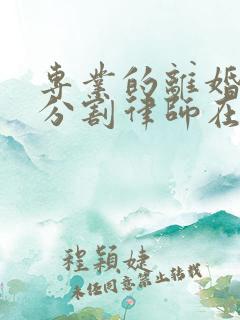 專業的離婚
分割律師在
程穎婕
未經同意禁止轉載